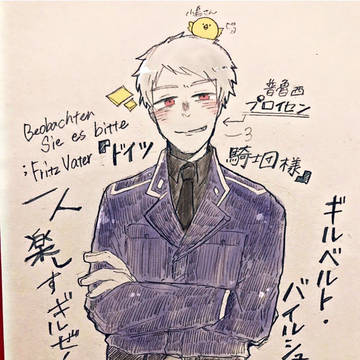 小鳥さん
普魯西
プロイセン
Beobachten
Sie es bitte
;Fritz Vater
『ドイツ
騎士団様』
ギルベルト・
バイルシュ
一人楽しすギルぜ